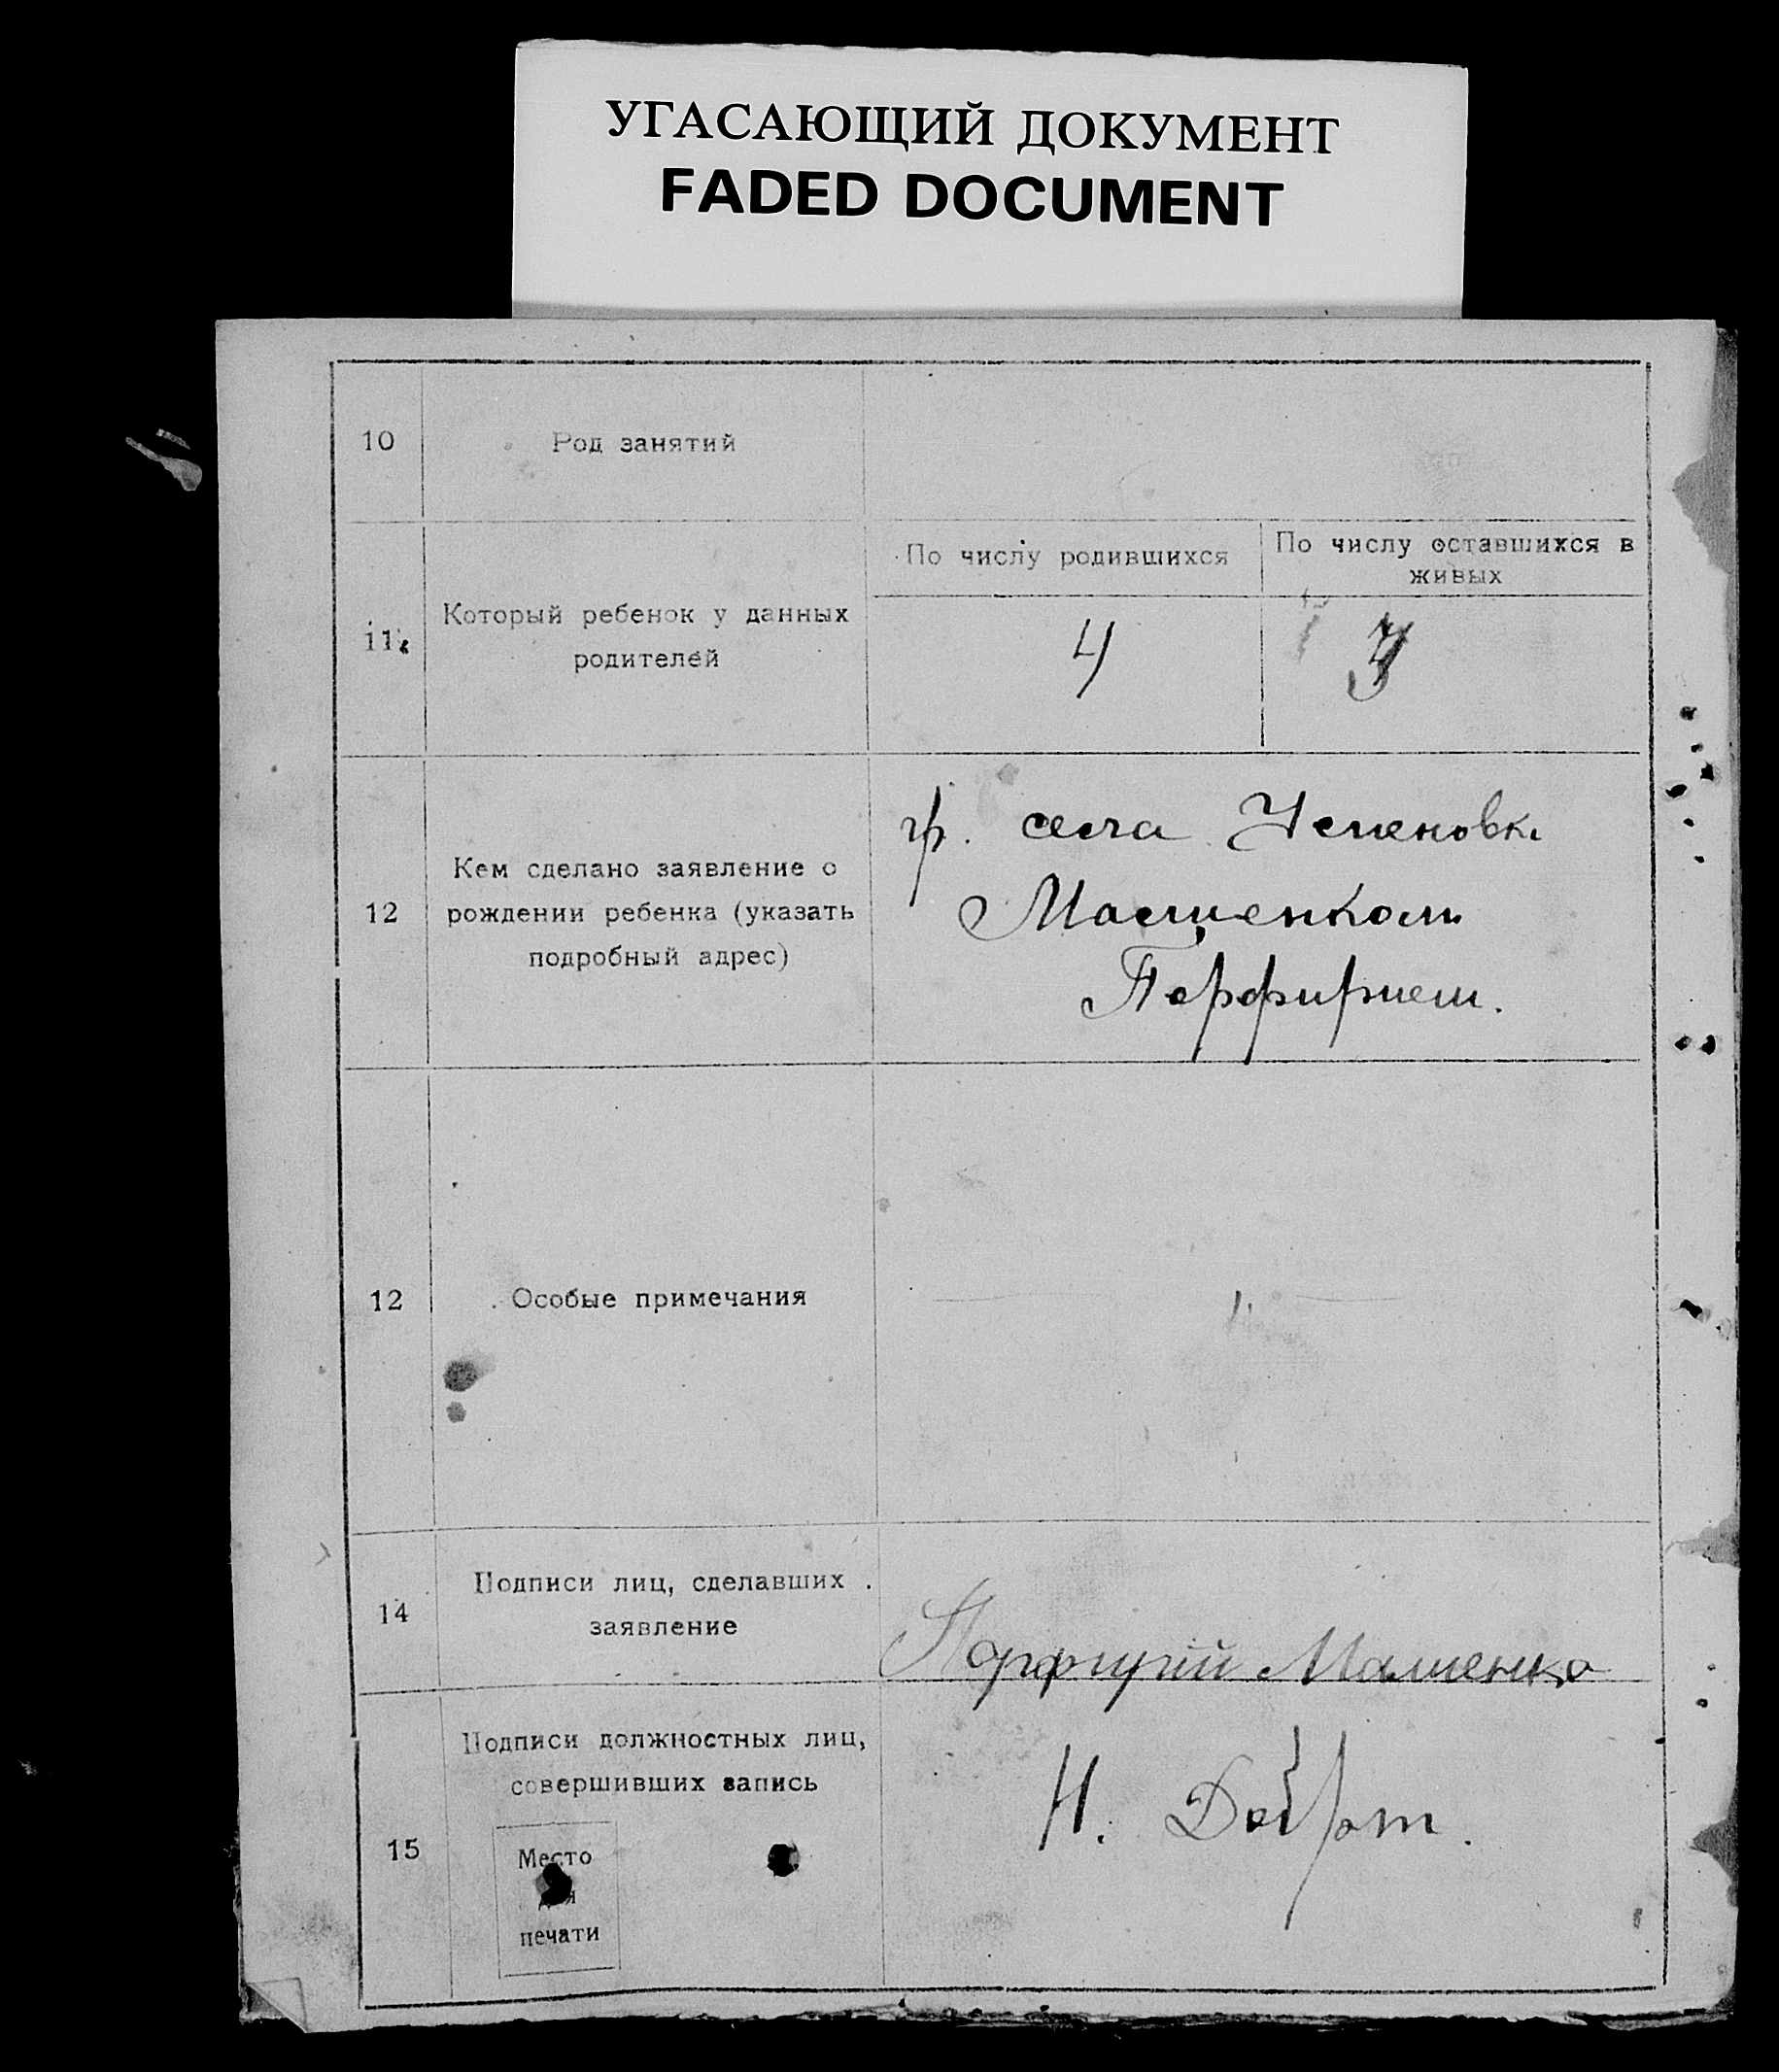 УГАСАЮЩИЙ ДОКУМЕНТ
FADED DOCUMENT
10 Род занятий
11. Который ребенок у данных
родителей
По числу родившихся
По числу оставшихся в
живых
4
3
12 Кем сделано заявление о
рождении ребенка (указать
подробный адрес)
гр. села Успеновки
Мащенком
Порфирием.
12 Особые примечания
14 Подписи лиц, сделавших
заявление
Порфирий Мащенко
15 Подписи должностных лиц,
совершивших запись
Место
для
печати
Н.